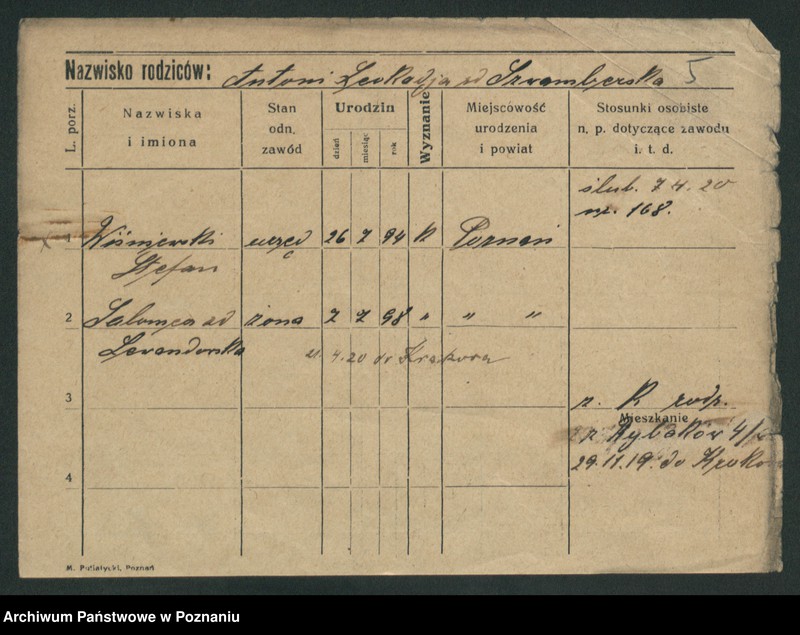 Nazwisko rodziców: Antoni Leokadja zd Szramberska 5
L. porz.
Nazwiska i imiona
Stan odn. zawód
Urodzin
dzień
miesiąc
rok
Wyznanie
Miejscowość urodzenia i powiat
Stosunki osobiste n. p. dotyczące zawodu i. t. d.
ślub. 7 4. 20
nr. 168.
1 Wiśniewski urzęd 26 7 94 K Poznań
Stefan
2 Salomea zd żona 7 7 98 " " "
Lewandowska
4. 20 do Krakowa
3
z. R rodz.
Mieszkanie
Rybaków 4/
29.11.19. do Krakow
4
M. Putiatycki, Poznań
Archiwum Państwowe w Poznaniu